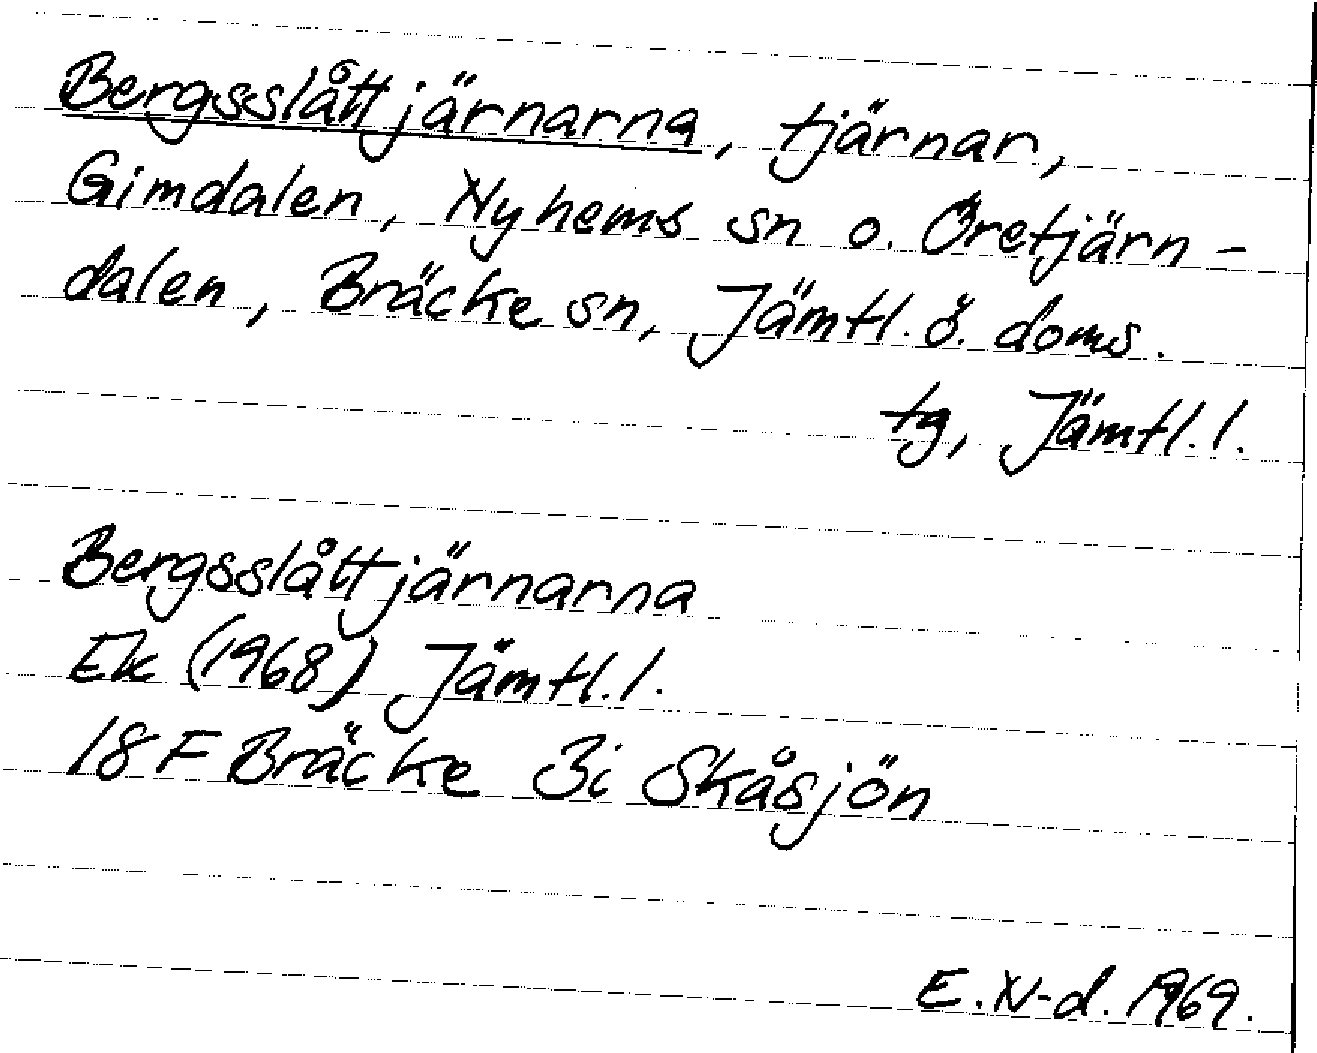 Bergsslåttjärnarna, tjärnar,
Gimdalen, Nyhems sn o. Öretjärn-
dalen, Bräcke sn, Jämtl. ö. doms.
tg, Jämtl. l.
Bergsslåttjärnarna
Ek (1968) Jämtl. l.
18 F Bräcke 3i Skåsjön
E. N-d. 1969.